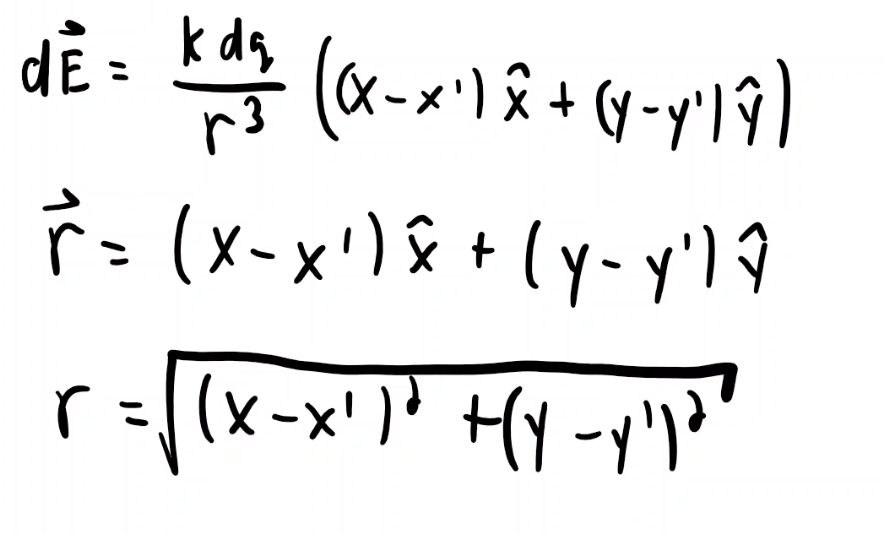 dE⃗ = k dq / r³ ((x-x') x̂ + (y-y') ŷ)
r⃗ = (x-x') x̂ + (y-y') ŷ
r = √((x-x')² + (y-y')²)